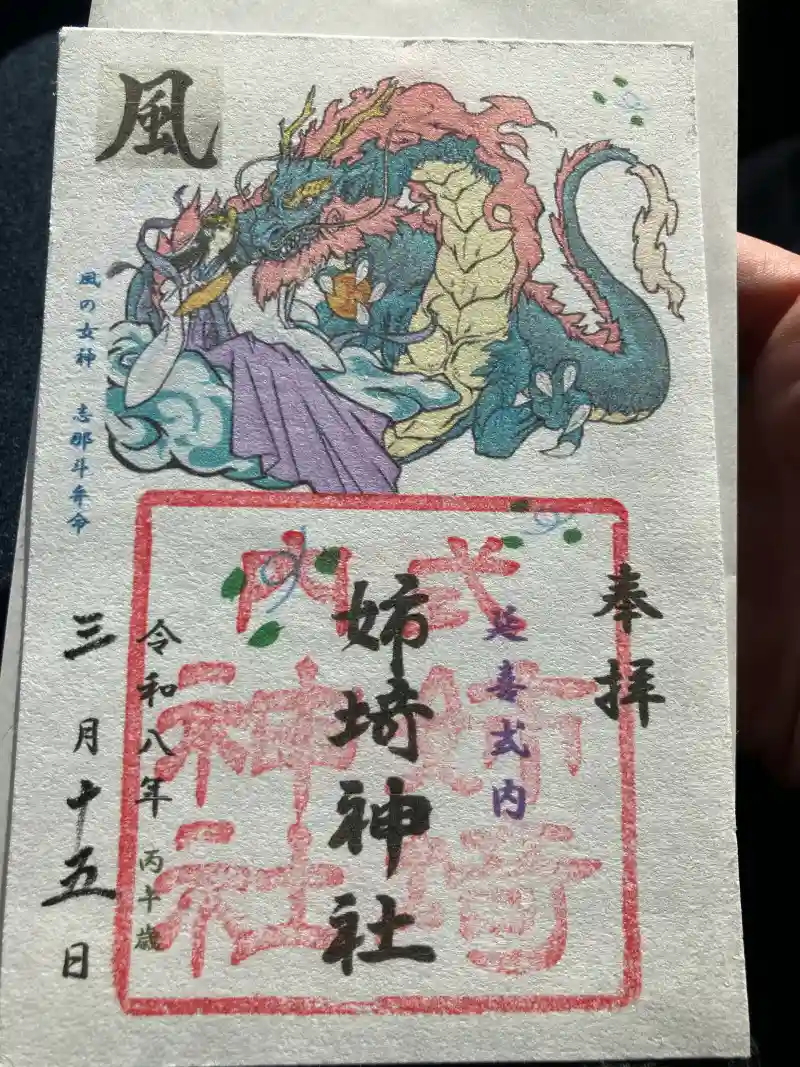 風
風の女神 志那斗弁命
奉拝
延喜式内
式内
姉埼
神社
姉埼神社
令和八年 丙午歳
三月十五日